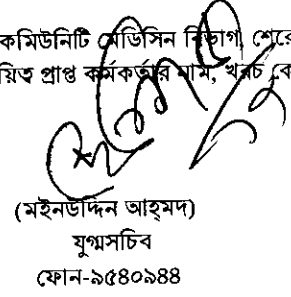 কমিউনিটি মেডিসিন বিভাগ, শেরে
য়িত্ব প্রাপ্ত কর্মকর্তার নাম, খরচ কো
(মইনউদ্দিন আহ্‌মদ)
যুগ্মসচিব
ফোন-৯৫৪০৯৪৪